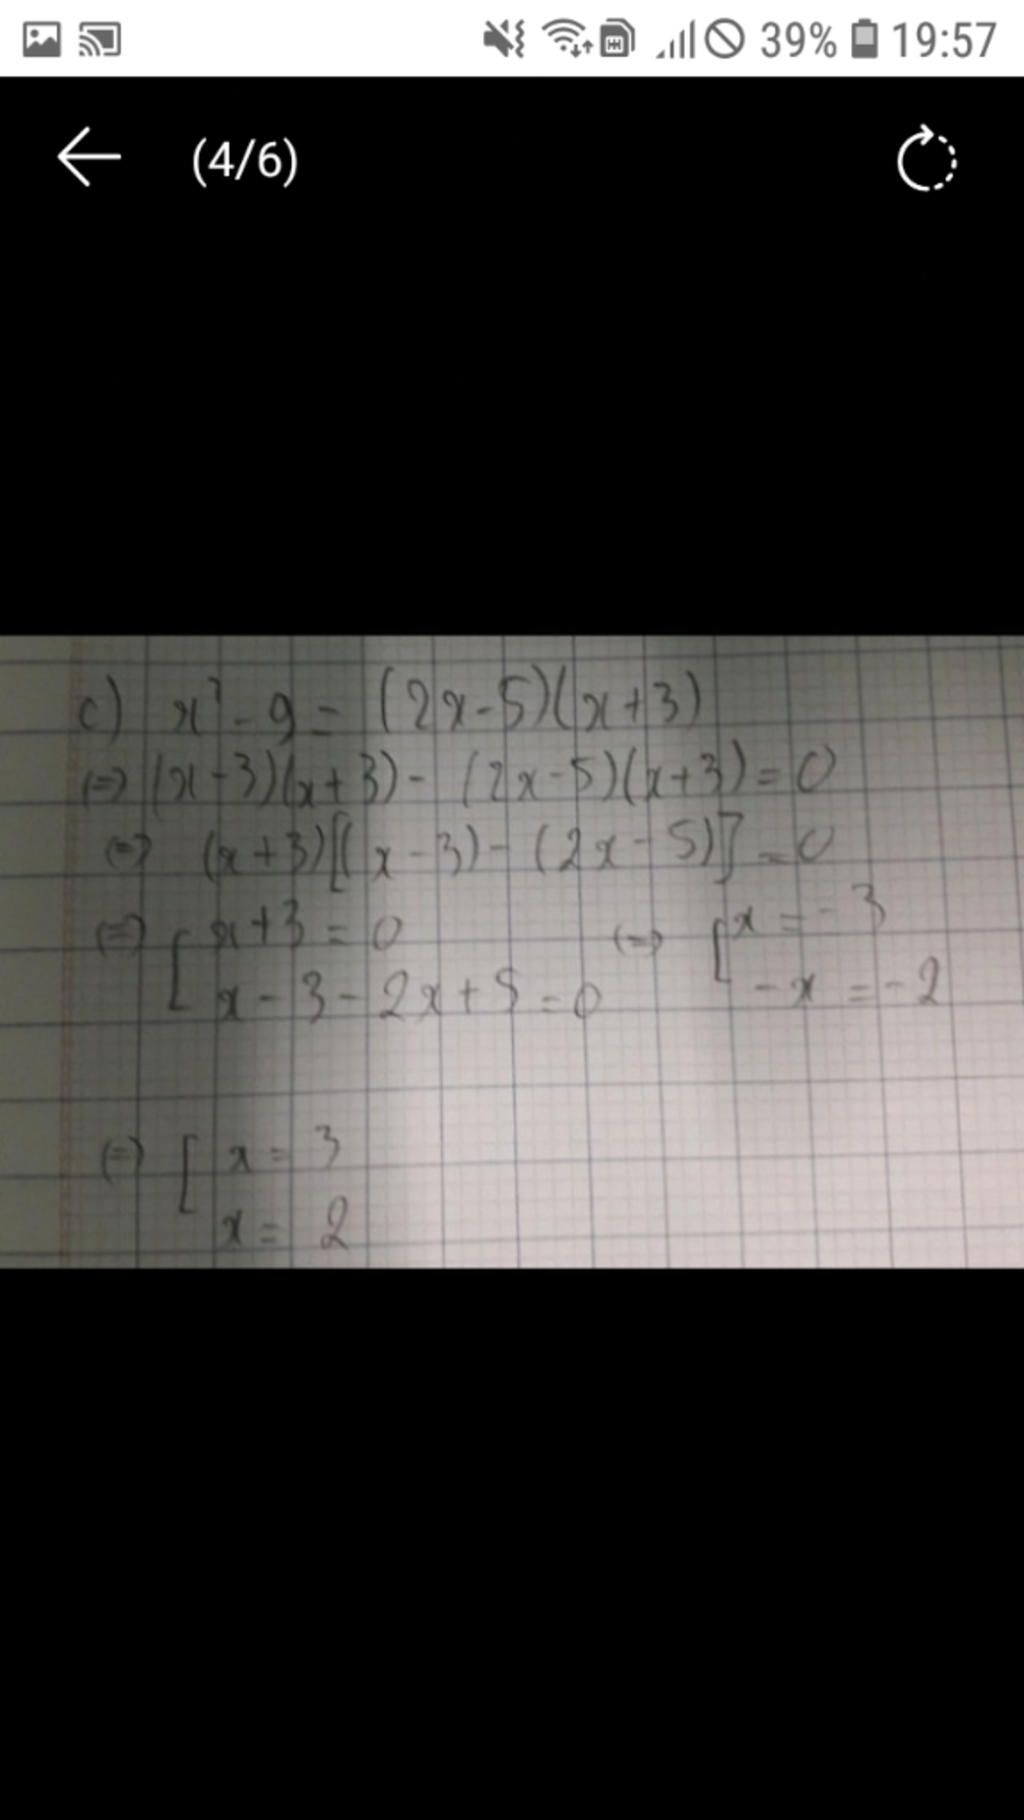 39% 19:57
(4/6)
c) x² - 9 = (2x-5)(x+3)
(=) (x-3)(x+3) - (2x-5)(x+3) = 0
(=) (x+3)[(x-3) - (2x-5)] = 0
(=) [ x+3 = 0 (=) [ x = -3
x - 3 - 2x + 5 = 0 -x = -2
(=) [ x = 3
x = 2